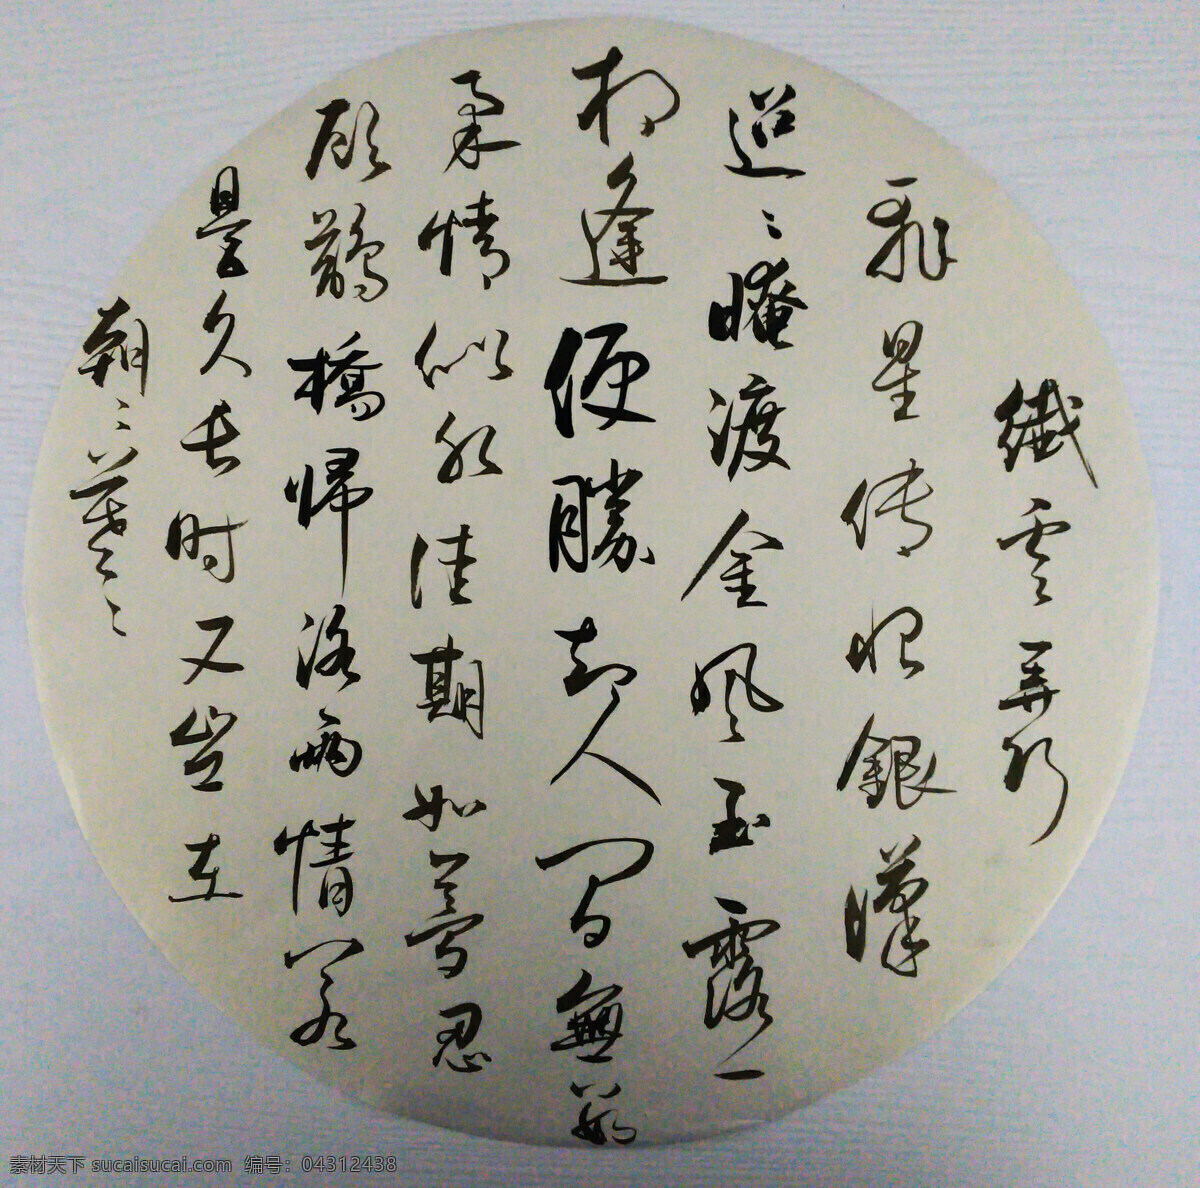 纖雲弄巧
飛星传恨銀漢
迢〻晻渡金風玉露一
相逢便勝却人间無数
柔情似水佳期如夢忍
顾鵲橋帰路两情若
是久长时又豈在
朝〻暮〻
素材天下 sucaisucai.com 编号：04312438